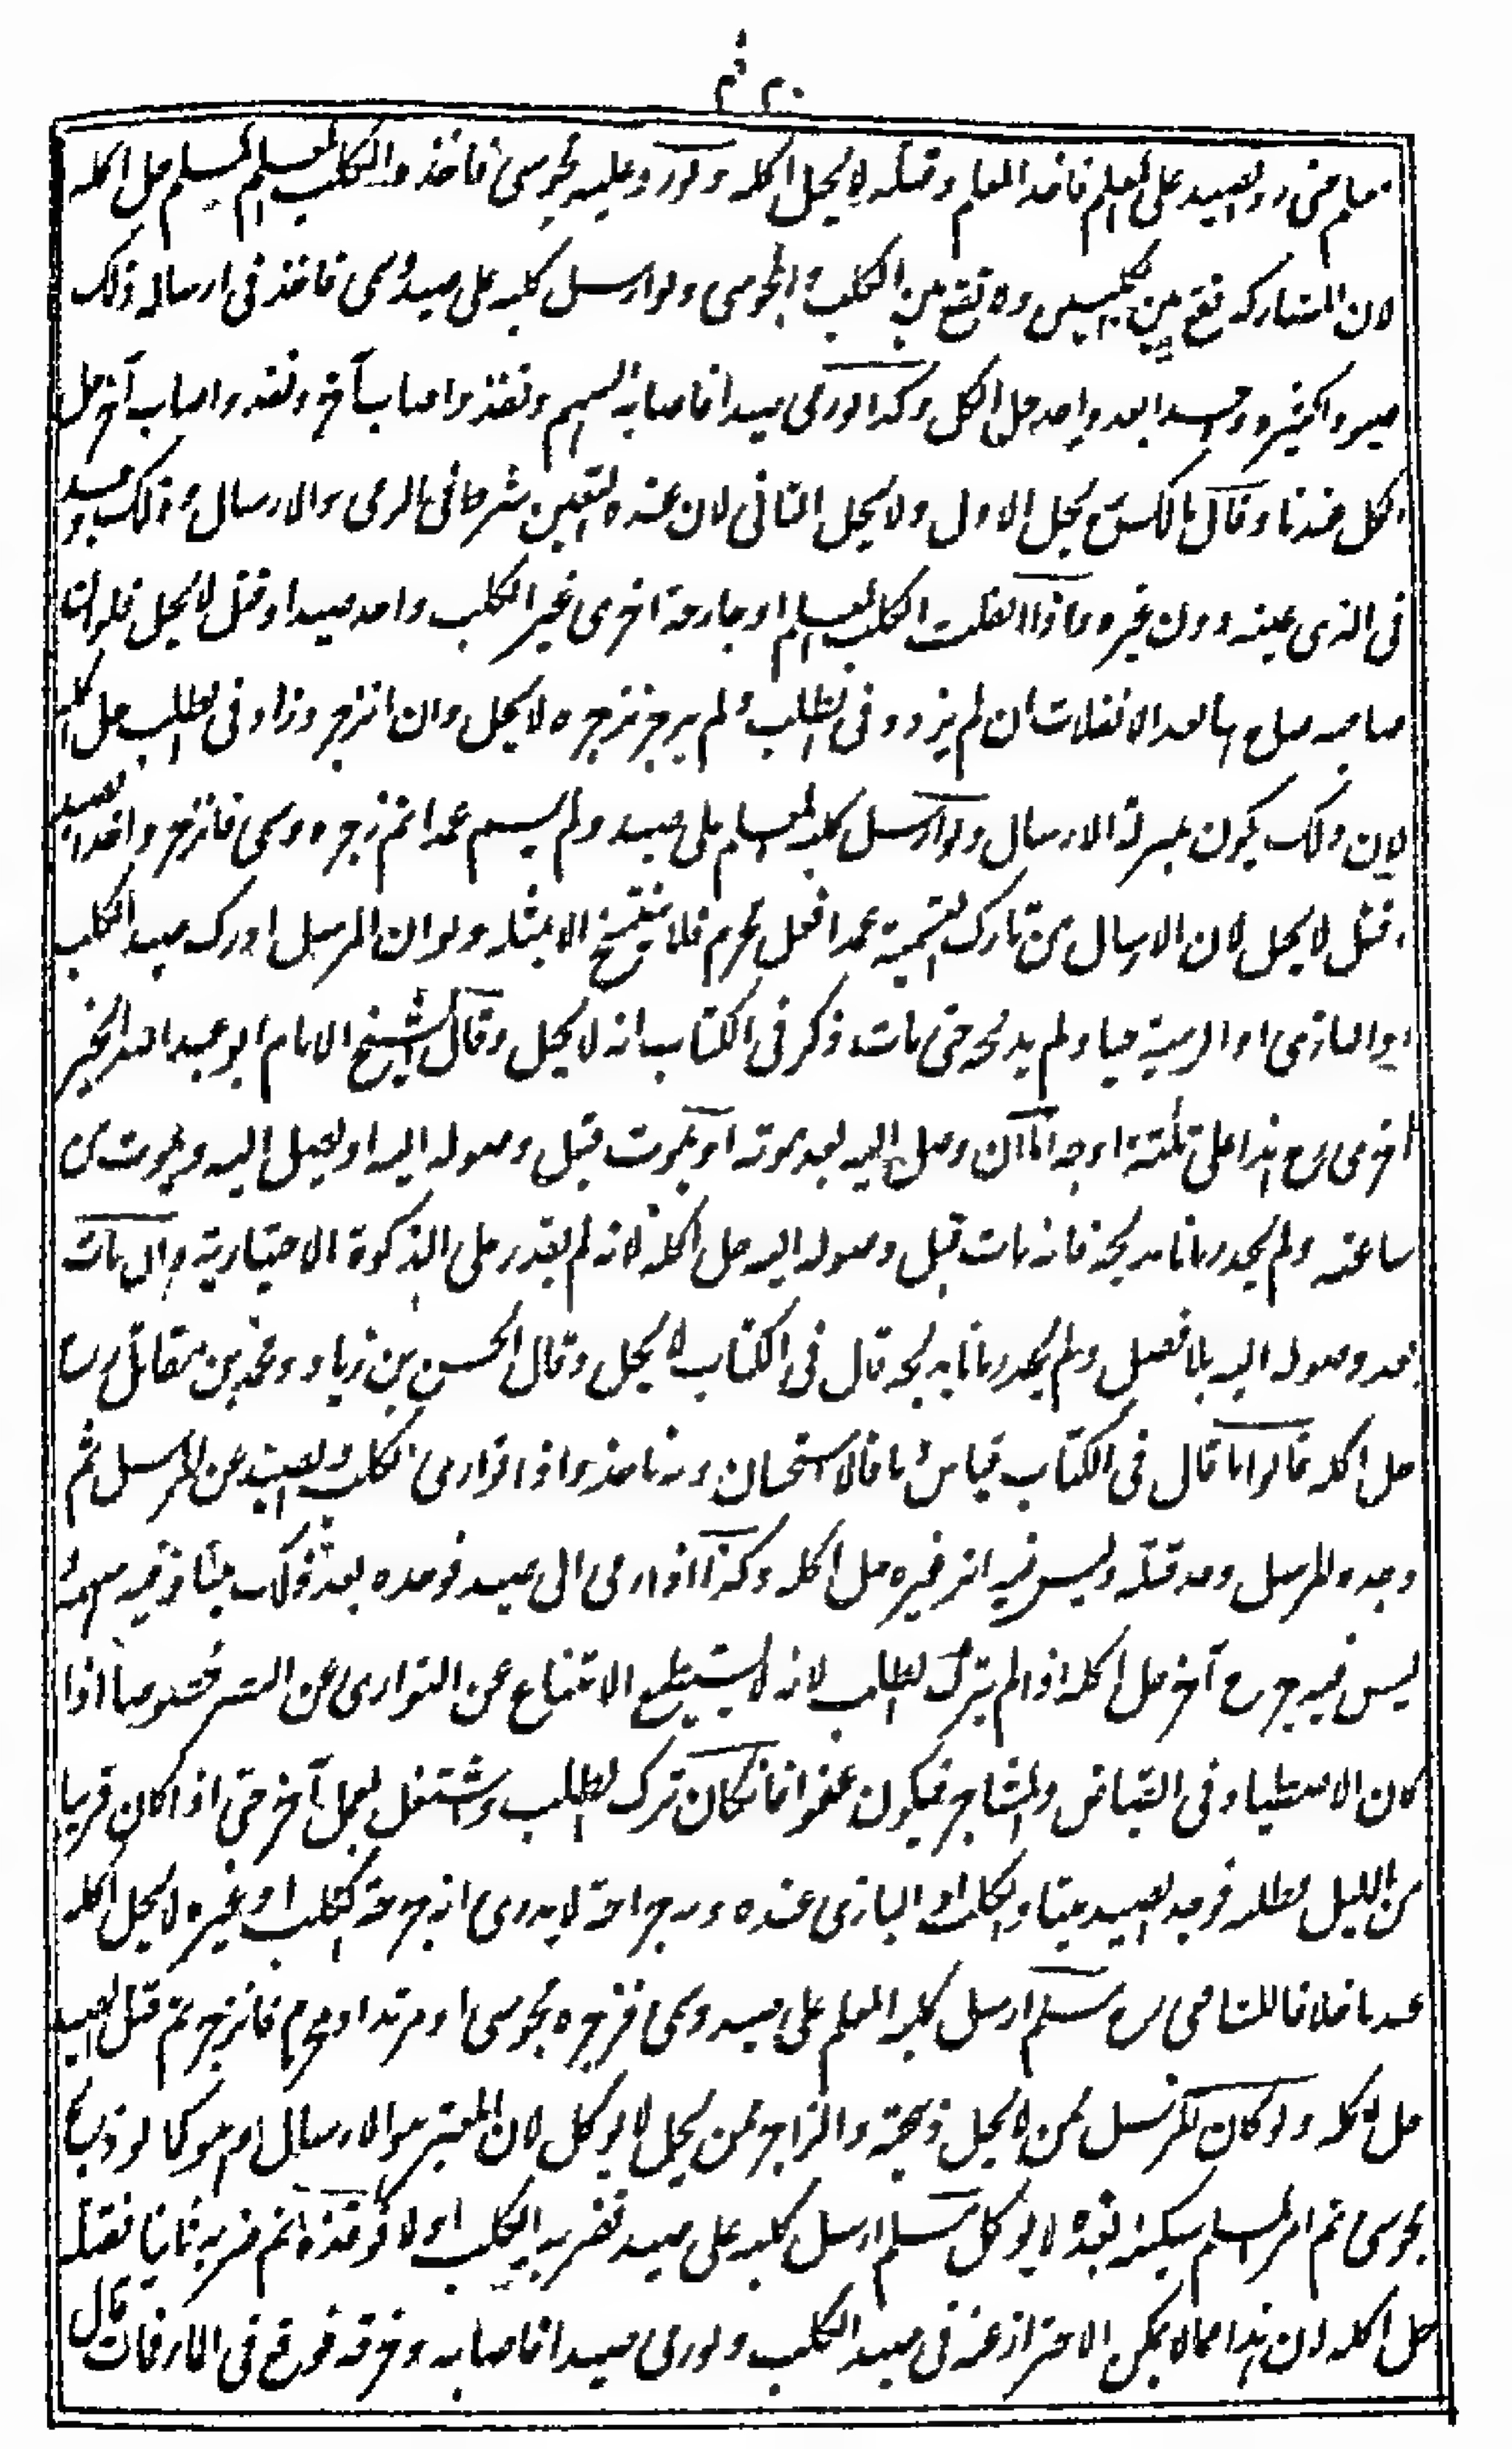 معلم حتى رد الصيد على المعلم فاخذ المعلم وقتله لا يحل اكله ولو رد عليه مجوسى فاخذه الكلب المعلم المسلم حل اكله
لان المشاركة تقع بين الكلبين ولا تقع بين الكلب والمجوسى ولو ارسل كلبه على صيد وسمى فاخذ فى ارساله ذلك
صيودا كثيرة واحدا بعد واحد حل الكل وكذا لو رمى صيدا فاصابه السهم ونفذ واصاب آخر ونفذ واصاب آخر حل
الكل عندنا وقال مالك رح يحل الاول ولا يحل الثانى لان عنده التعيين شرط فى الرمى والارسال وذلك وجد
فى الذى عينه دون غيره واذا انفلت الكلب المعلم او جارحة اخرى غير الكلب واخذ صيدا وقتل لا يحل فلو ان
صاحبه صاح به بعد الانفلات ان لم يزدد فى الطلب ولم ينزجر بزجره لا يحل وان انزجر وزاد فى الطلب حل اكله
لان ذلك يكون بمنزلة الارسال ولو ارسل كلبه المعلم على صيد ولم يسم عمدا ثم زجره وسمى فانزجر واخذ الصيد
وقتل لا يحل لان الارسال من تارك التسمية عمدا فعل محرم فلا ينفسخ الا بمثله ولو ان المرسل ادرك صيد الكلب
او البازى او الرمية حيا ولم يذبحه حتى مات ذكر فى الكتاب انه لا يحل وقال الشيخ الامام ابو عبد الله الخير
اخرى رح هذا على ثلثة اوجه اما ان وصل اليه بعد موته او يموت قبل وصوله اليه او يصل اليه ويموت من
ساعته ولم يجد زمانا يذبحه فانه مات قبل وصوله اليه حل اكله لانه لم يقدر على الذكوة الاختيارية وان مات
بعد وصوله اليه بلا فصل ولم يجد زمانا يذبحه قال فى الكتاب لا يحل وقال الحسن بن زياد ومحمد بن مقاتل رح
حل اكله قالوا ما قال فى الكتاب قياس واما فالاستحسان وبه ناخذ واذا توارى الكلب والصيد عن المرسل ثم
وجده المرسل وقد قتله وليس فيه اثر غيره حل اكله وكذا اذا رمى الى صيد فوجده بعد ذلك ميتا وفيه سهمه
ليس فيه جرح آخر حل اكله اذا لم يترك الطلب لانه لا يستطيع الامتناع عن التوارى عن البصر خصوصا اذا
كان الاصطياد فى الغياض والمشاجر فيكون عفوا فان كان ترك الطلب واشتغل بعمل آخر حتى اذا كان قريبا
من الليل طلبه فوجد الصيد ميتا والكلب او البازى عنده وبه جراحة لا يدرى انه جرحه الكلب او غيره لا يحل اكله
عندنا خلافا للشافعى رح مسلم ارسل كلبه المعلم على صيد وسمى فزجره مجوسى او مرتد او محرم فانزجر ثم قتل الصيد
حل اكله ولو كان المرسل ممن لا يحل ذبيحته والزاجر ممن يحل لا يوكل لان المعتبر هو الارسال او هو كما لو ذبح
مجوسى ثم امر المسلم سكينه بعده لا يوكل مسلم ارسل كلبه على صيد فضربه الكلب اولا فوقذه ثم ضربه ثانيا فقتله
حل اكله لان هذا مما لا يمكن الاحتراز عنه فى صيد الكلب ولو رمى صيدا فاصابه وخرقه فوقع فى المارفات قال